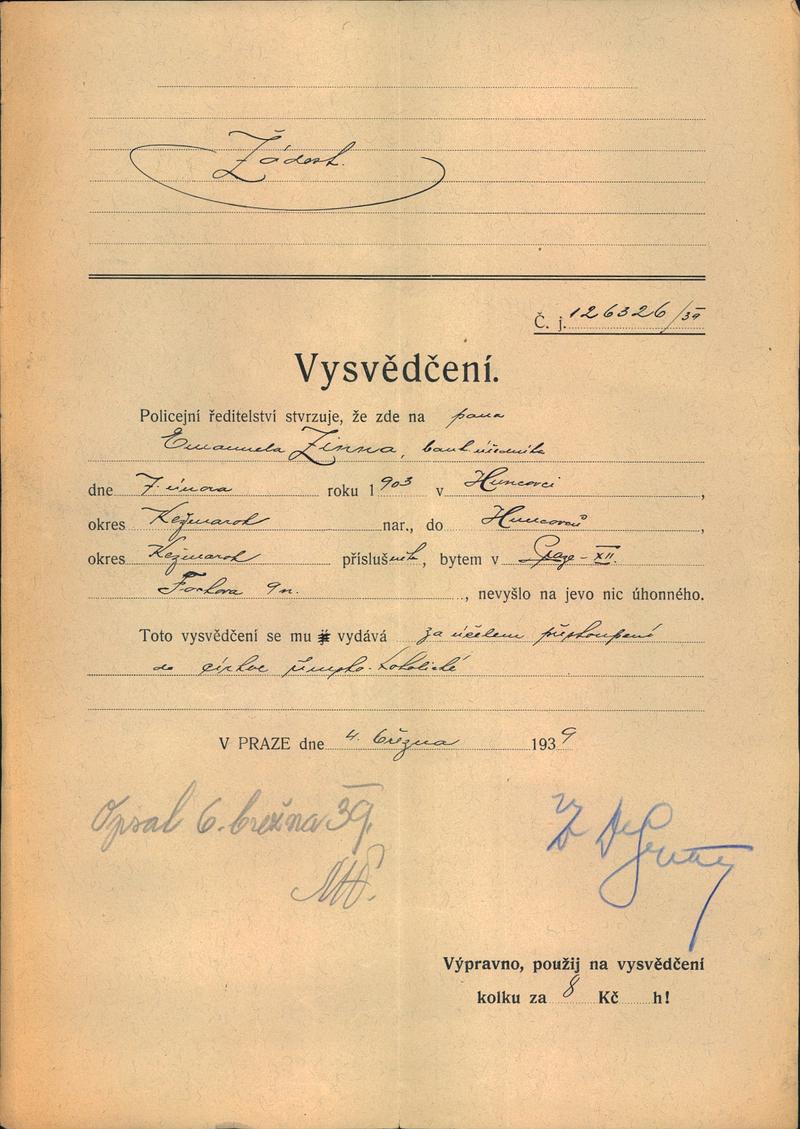 Žádost.
Č. j. 126326/39
Vysvědčení.
Policejní ředitelství stvrzuje, že zde na pana
Emanuela Zinna, bank. úředníka
dne 7. února roku 1903 v Huncovci,
okres Kežmarok nar., do Huncovců,
okres Kežmarok příslušník, bytem v Praze-XII.
Fochova 9 n., nevyšlo na jevo nic úhonného.
Toto vysvědčení se mu vydává za účelem přestoupení
do církve římsko-katolické
V PRAZE dne 4. března 1939
Opsal 6. března 39.
Výpravno, použij na vysvědčení
kolku za 8 Kč h!